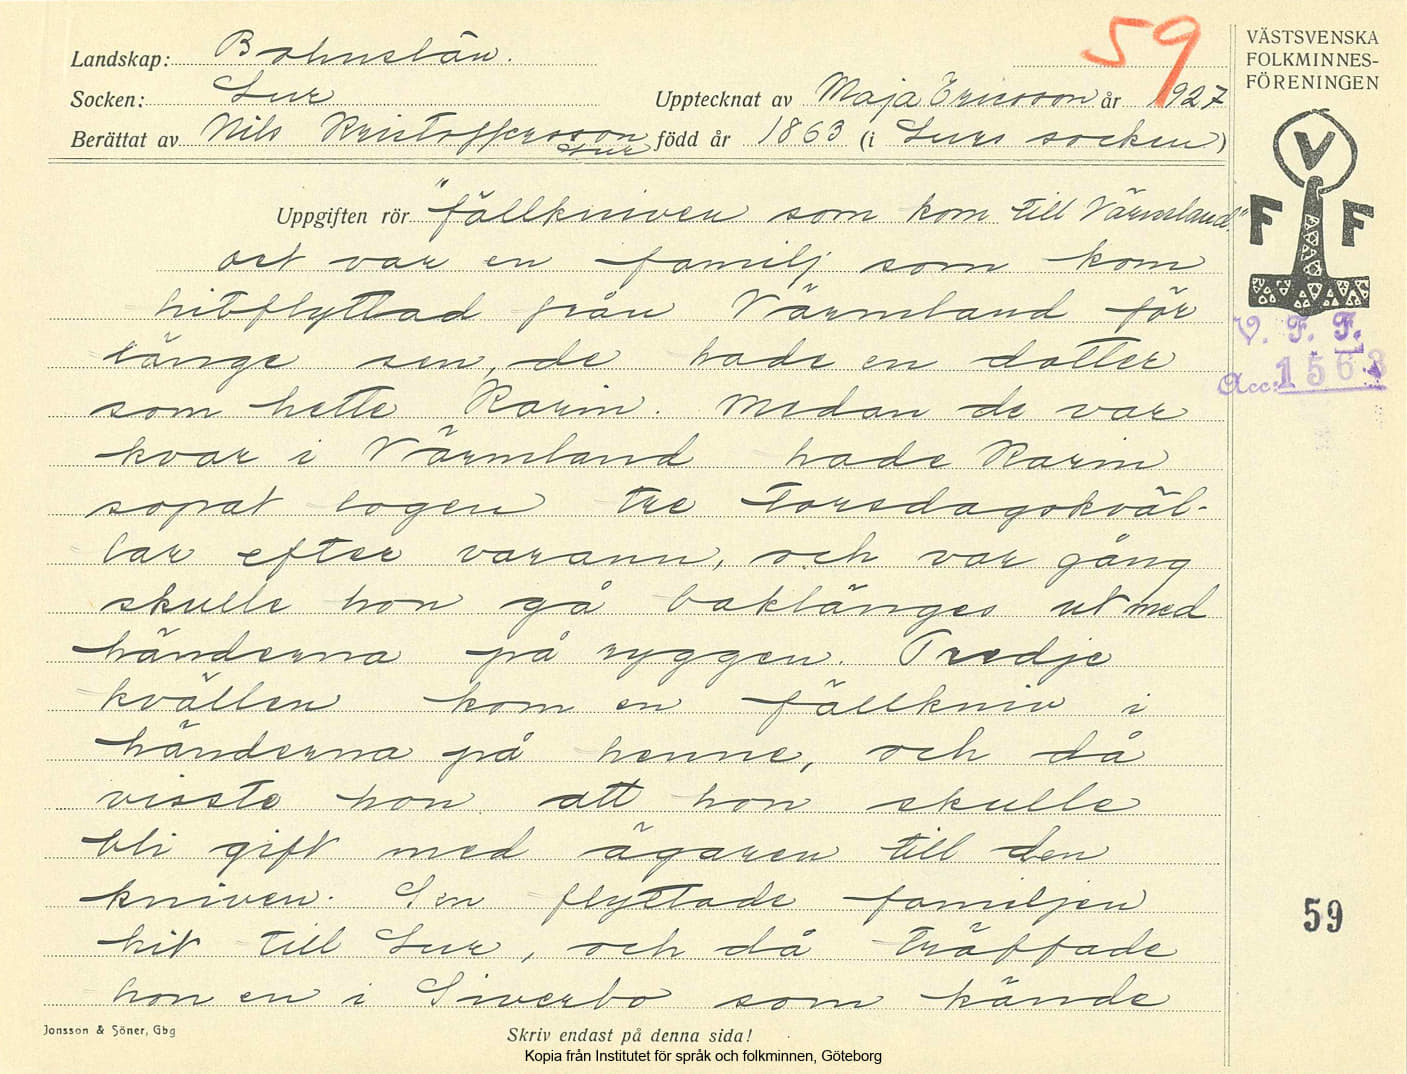 59
Landskap: Bohuslän.
Socken: Lur
Upptecknat av Maja Ericsson år 1927
Berättat av Nils Kristoffersson
Lur
född år 1863 (i Lurs socken)
Uppgiften rör "fällkniven som kom till Värmland."
det var en familj som kom
hitflyttad från Värmland för
länge sen, de hade en dotter
som hette Karin. Medan de var
kvar i Värmland hade Karin
sopat logen tre torsdagskväl-
lar efter varann, och var gång
skulle hon gå baklänges ut med
händerna på ryggen. Tredje
kvällen kom en fällkniv i
händerna på henne, och då
visste hon att hon skulle
bli gift med ägaren till den
kniven. Sen flyttade familjen
hit till Lur, och då träffade
hon en i Siverbo som kände
Jonsson & Söner, Gbg
Skriv endast på denna sida!
Kopia från Institutet för språk och folkminnen, Göteborg
VÄSTSVENSKA
FOLKMINNES-
FÖRENINGEN
V
F F
V. F. F.
Acc: 1563
59